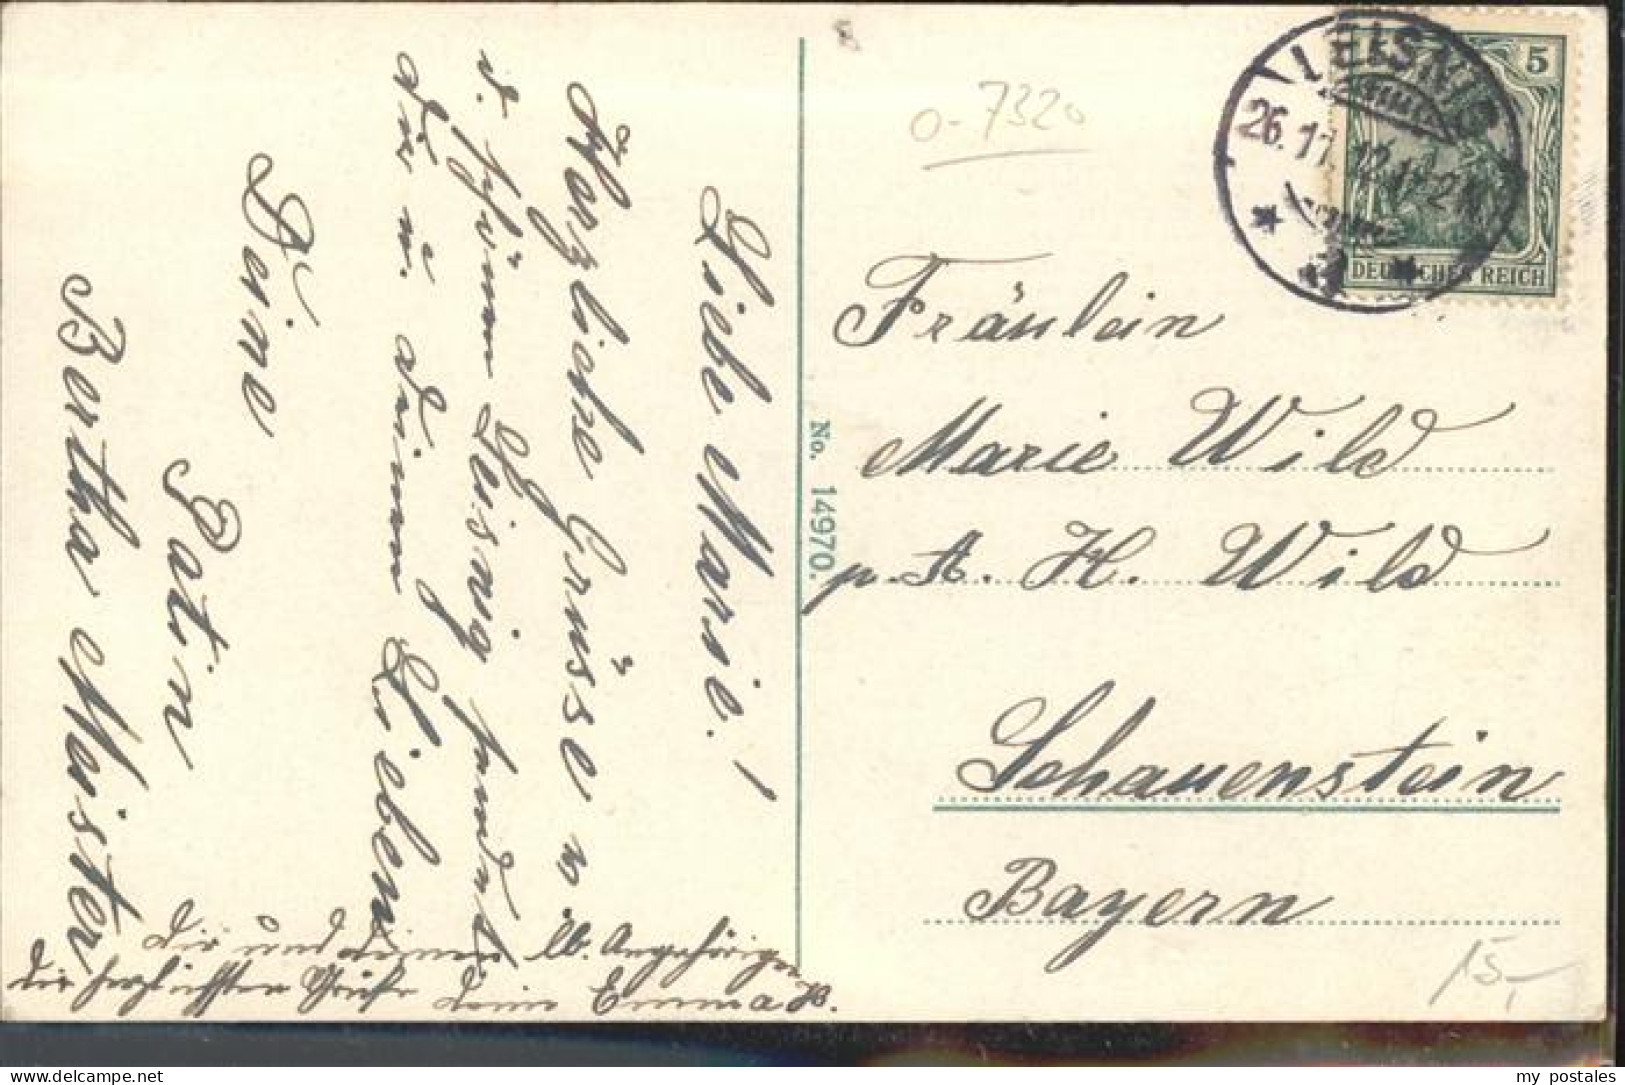 Liebe Marie!
Herzliche Grüsse v.
d. schönen Leisnig sendet
Dir u. deinen Lieben
Deine
Patin
Bertha Meister
Dir und deinen lb. Angehörigen
die herzlichsten Grüße Deine Emma H.
No. 14970.
0-7320
LEISNIG
26.11.12.
5
DEUTSCHES REICH
Fräulein
Marie Wild
p. A. H. Wild
Schauenstein
Bayern
15,-
my postales